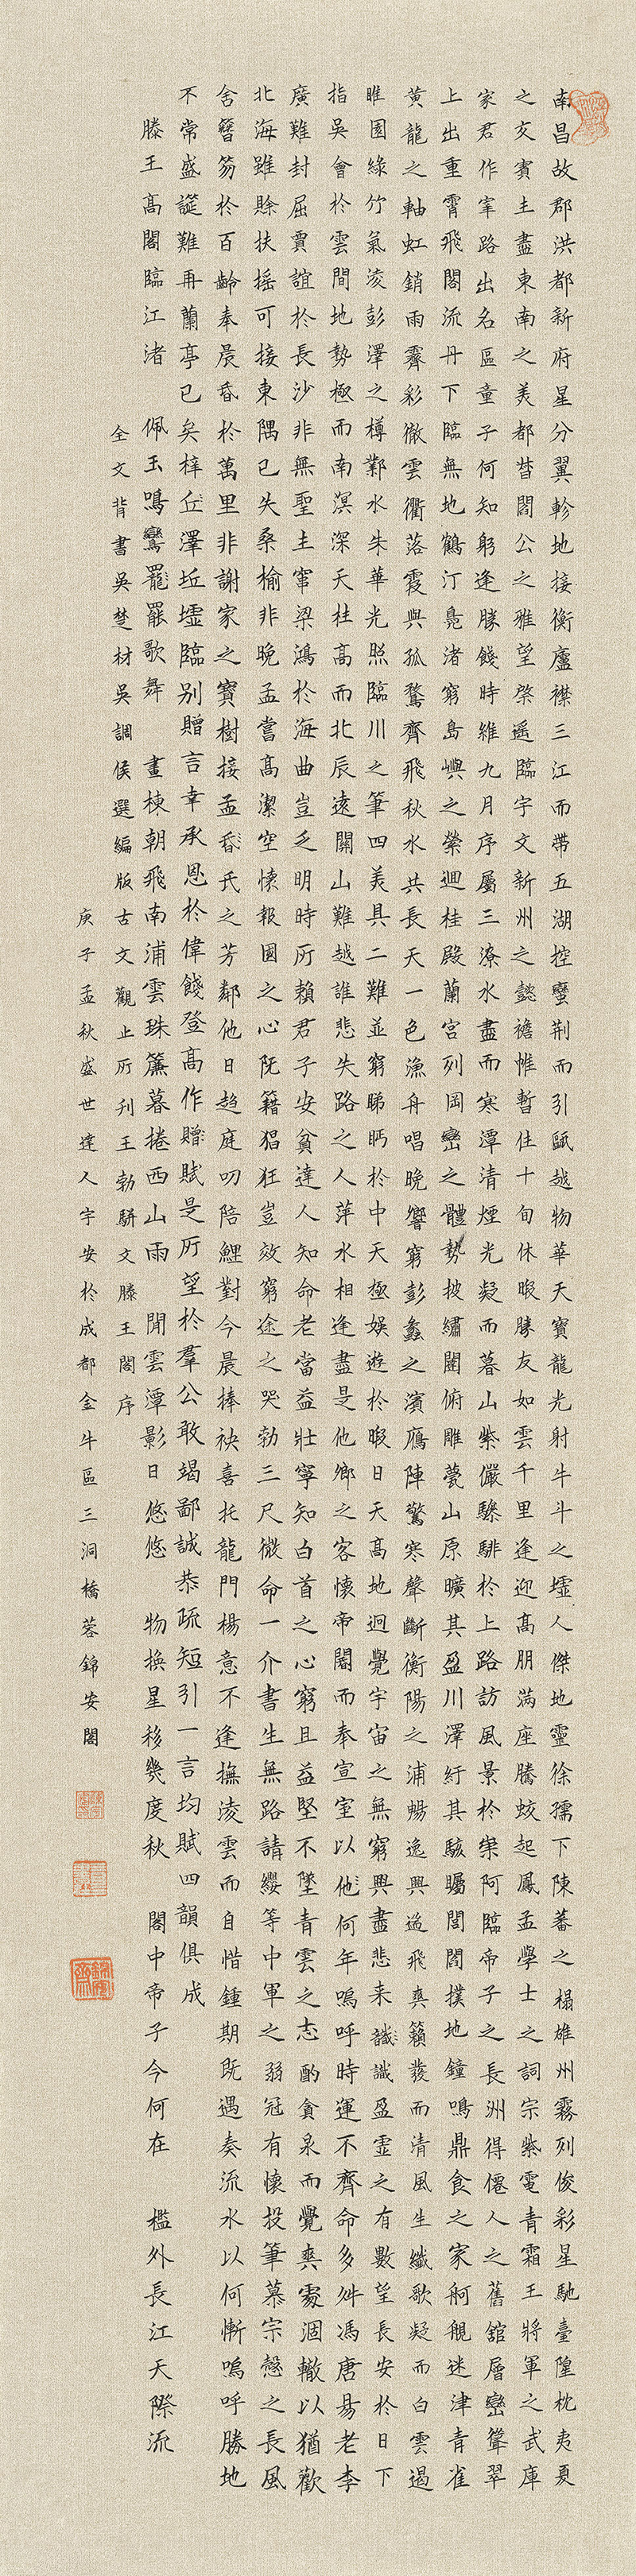 南昌故郡洪都新府星分翼軫地接衡廬襟三江而帶五湖控蠻荆而引甌越物華天寶龍光射牛斗之墟人傑地靈徐孺下陳蕃之榻雄州霧列俊彩星馳臺隍枕夷夏
之交賓主盡東南之美都督閻公之雅望棨遥臨宇文新州之懿襜帷暫住十旬休暇勝友如雲千里逢迎高朋滿座騰蛟起鳳孟學士之詞宗紫電青霜王將軍之武庫
家君作宰路出名區童子何知躬逢勝餞時維九月序屬三潦水盡而寒潭清煙光凝而暮山紫儼驂騑於上路訪風景於崇阿臨帝子之長洲得僊人之舊館層巒聳翠
上出重霄飛閣流丹下臨無地鶴汀鳧渚窮島嶼之縈迴桂殿蘭宮列岡巒之體勢披繡闥俯雕甍山原曠其盈川澤紆其駭矚閭閻撲地鐘鳴鼎食之家舸艦迷津青雀
黃龍之軸虹銷雨霽彩徹雲衢落霞與孤鶩齊飛秋水共長天一色漁舟唱晚響窮彭蠡之濱鴈陣驚寒聲斷衡陽之浦暢逸興遄飛爽籟發而清風生纖歌凝而白雲遏
睢園綠竹氣凌彭澤之樽鄴水朱華光照臨川之筆四美具二難並窮睇眄於中天極娛遊於暇日天高地迥覺宇宙之無窮興盡悲来識識盈虛之有數望長安於日下
指吳會於雲間地勢極而南溟深天柱高而北辰遠關山難越誰悲失路之人萍水相逢盡是他鄉之客懷帝閽而奉宣室以他何年嗚呼時運不齊命多舛馮唐易老李
廣難封屈賈誼於長沙非無聖主竄梁鴻於海曲豈乏明時所賴君子安貧達人知命老當益壯寧知白首之心窮且益堅不墜青雲之志酌貪泉而覺爽處涸轍以猶歡
北海雖賒扶摇可接東隅已失桑榆非晚孟嘗高潔空懷報國之心阮籍猖狂豈效窮途之哭勃三尺微命一介書生無路請纓等中軍之弱冠有懷投筆慕宗愨之長風
舍簪笏於百齡奉晨昏於萬里非謝家之寶樹接孟昏氏之芳鄰他日趨庭叨陪鯉對今晨捧袂喜托龍門楊意不逢撫凌雲而自惜鍾期既遇奏流水以何慚嗚呼勝地
不常盛筵難再蘭亭已矣梓丘澤坵墟臨别贈言幸承恩於偉餞登高作贈賦是所望於羣公敢竭鄙誠恭疏短引一言均賦四韻俱成
滕王高閣臨江渚 佩玉鳴鸞罷罷歌舞 畫棟朝飛南浦雲珠簾暮捲西山雨 閒雲潭影日悠悠 物换星移幾度秋 閣中帝子今何在 檻外長江天際流
全文背書吳楚材吳調侯選編版古文觀止所刊王勃駢文滕王閣序
庚子孟秋盛世達人宇安於成都金牛區三洞橋蓉錦安閣